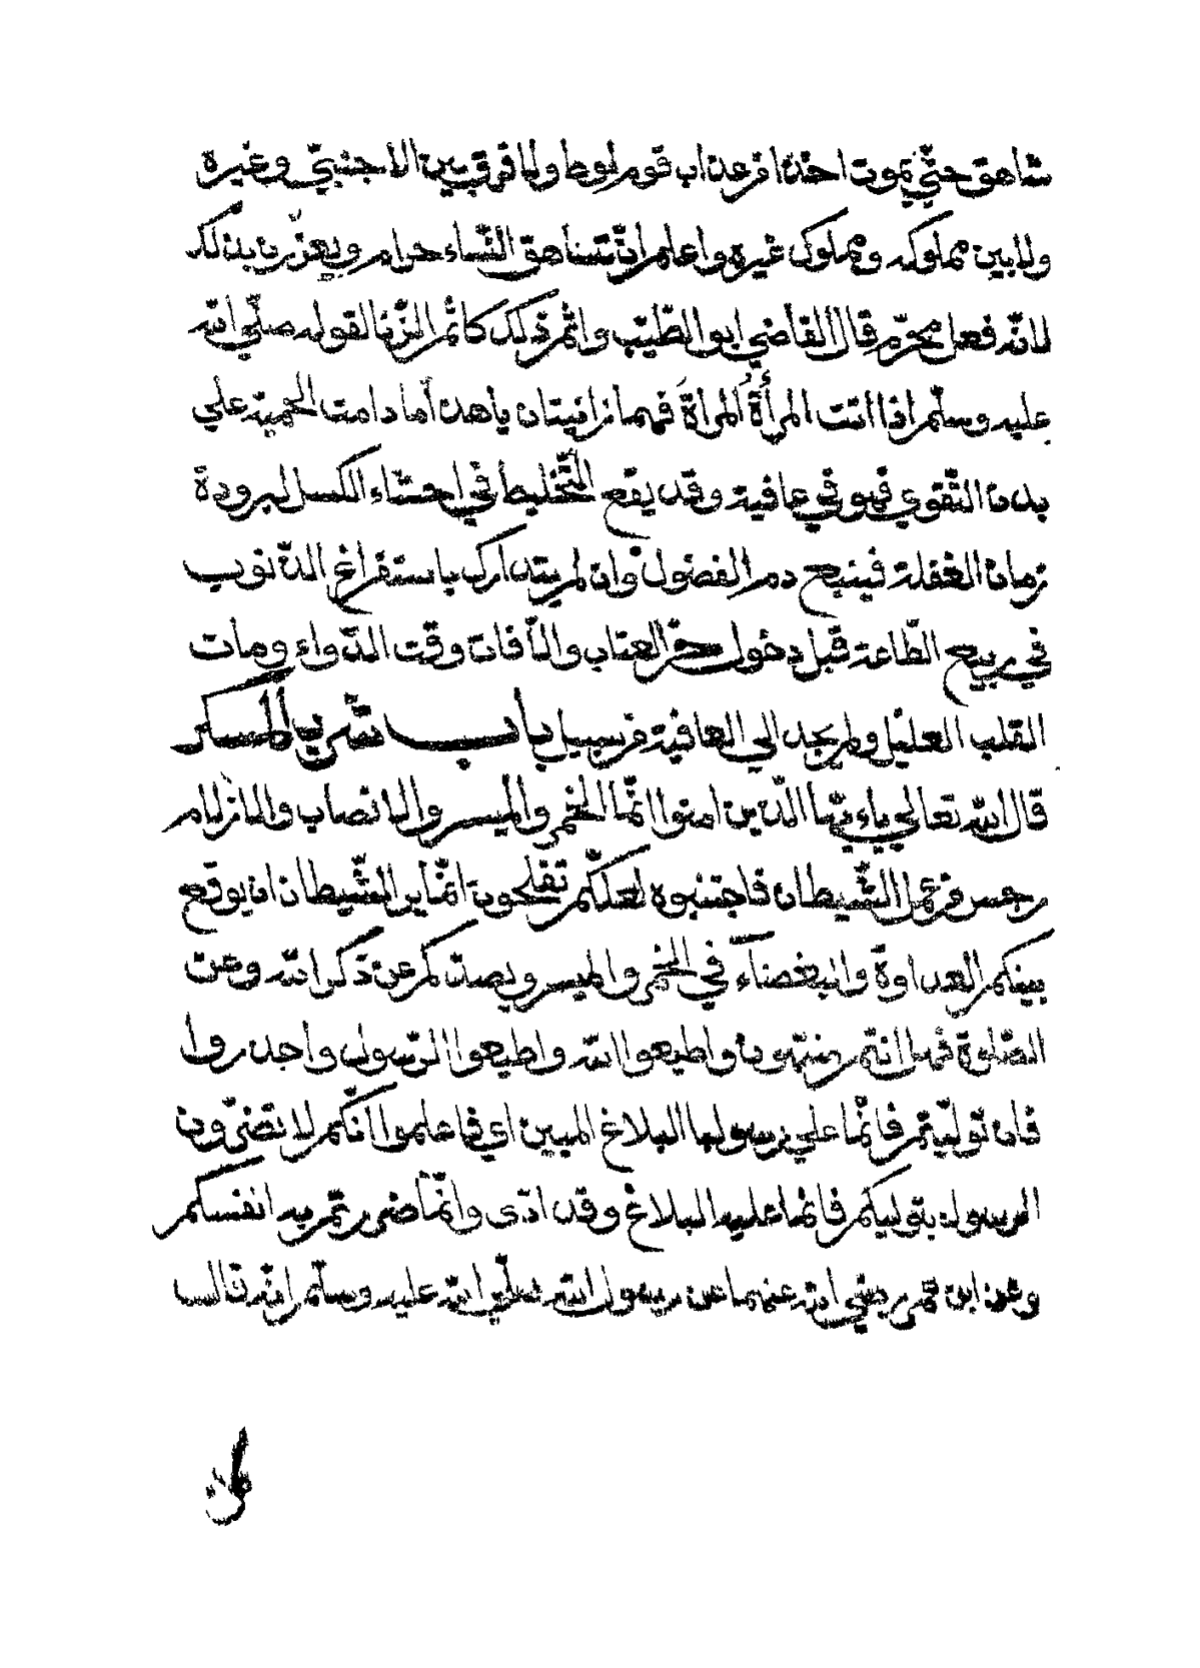 شاهق حتّي يموت اخذا من عذاب قوم لوط ولا فرق بين الاجنبيّ وغيره
ولا بين مملوكه ومملوك غيره واعلم انّ تساهق النّساء حرام ويعزّرن بذلك
لانّه فعل محرّم قال القاضي ابو الطّيّب واثم ذلك كاثم الزّنا لقوله صلّي الله
عليه وسلّم اذا اتت المرأة المرأة فهما زانيتان ياهذا ما دامت الحمية علي
بدن التّقوي فهو في عافية وقد يقع التّخليط في احشاء الكسل لبرودة
زمان الغفلة فينبع دم الفضول وان لم يتدارك باستفراغ الذّنوب
في ربيع الطّاعة قبل دخول حرّ العتاب والا فات وقت الدّواء ومات
القلب العليل ولم يجد الي العافية من سبيل باب شرب المسكر
قال الله تعالي ياءيّها الّذين امنوا انّما الخمر والميسر والانصاب والازلام
رجس من عمل الشّيطان فاجتنبوه لعلّكم تفلحون انّما يريد الشّيطان ان يوقع
بينكم العداوة والبغضآء في الخمر والميسر ويصدّكم عن ذكر الله وعن
الصّلوة فهل انتم منتهون واطيعوا الله واطيعوا الرّسول واحذروا
فان تولّيتم فانّما علي رسولنا البلاغ المبين اي فاعلموا انّكم لا تضرّون
الرسول بتوليكم فانما عليه البلاغ وقد ادّى وانّما ضررتم به انفسكم
وعن ابن عمر رضي الله عنهما عن رسول الله صلّي الله عليه وسلّم انّه قال
كل